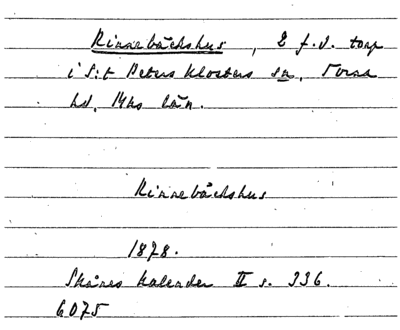 Rinnebäckshus, 2 f.d. torp
i S:t Peters Klosters sn, Torna
hd, Mhs län.
Rinnebäckshus
1878.
Skånes Kalender II s. 336.
6075